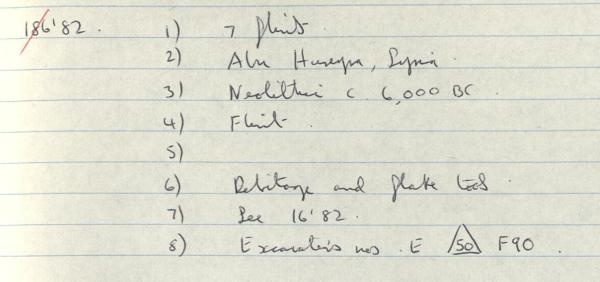 186'82. 1) 7 flints.
2) Abu Hureyra, Syria.
3) Neolithic c. 6,000 BC.
4) Flint.
5)
6) Debitage and flake tools.
7) See 16'82.
8) Excavation nos. E 50 F90.